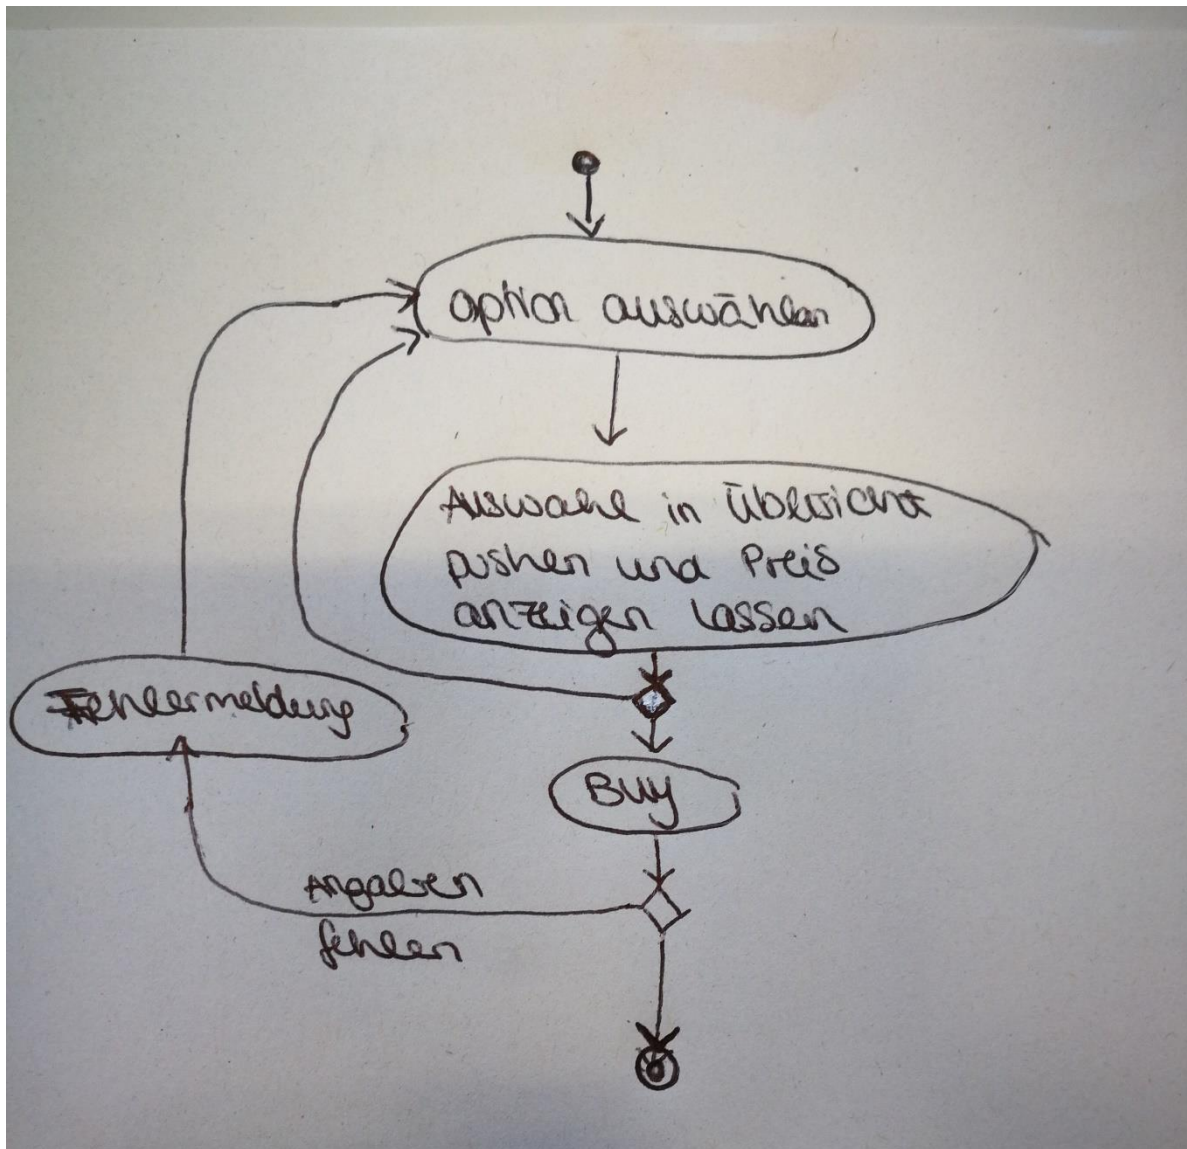 option auswählen
Auswahl in Übersicht
pushen und Preis
anzeigen lassen
Fehlermeldung
Buy
Angaben
fehlen